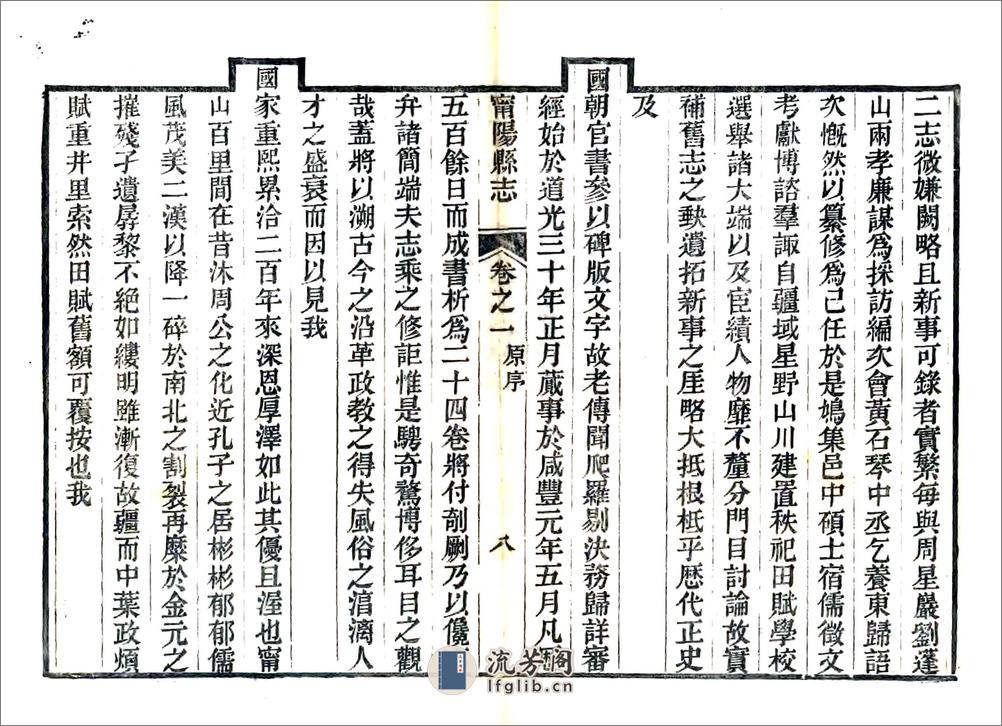 二志微嫌闕略且新事可錄者實繁每與周星巖劉蓬
山兩孝廉謀爲採訪編次會黃石琴中丞乞養東歸語
次慨然以纂修爲己任於是鳩集邑中碩士宿儒徵文
考獻博諮羣諏自疆域星野山川建置秩祀田賦學校
選舉諸大端以及宦績人物靡不釐分門目討論故實
補舊志之缺遺拓新事之厓略大抵根柢乎歷代正史
及
國朝官書參以碑版文字故老傳聞爬羅剔決務歸詳審
經始於道光三十年正月蕆事於咸豐元年五月凡
甯陽縣志
卷之一
原序
八
五百餘日而成書析爲二十四卷將付剞劂乃以儳
弁諸簡端夫志乘之修詎惟是騁奇驚博侈耳目之觀
哉蓋將以溯古今之沿革政教之得失風俗之淳漓人
才之盛衰而因以見我
國家重熙累洽二百年來深恩厚澤如此其優且渥也甯
山百里間在昔沐周公之化近孔子之居彬彬郁郁儒
風茂美二漢以降一碎於南北之割裂再糜於金元之
摧殘孑遺孱黎不絕如縷明雖漸復故疆而中葉政煩
賦重井里索然田賦舊額可覆按也我
流芳閣
lfglib.cn